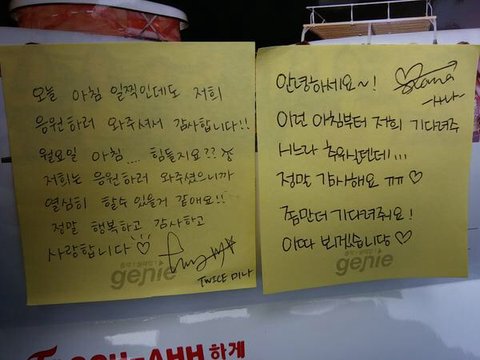 오늘 아침 일찍인데도 저희
응원하러 와주셔서 감사합니다!!
월요일 아침.... 힘들지요??
저희는 응원하러 와주셨으니까
열심히 할수 있을거 같애요!!
정말 행복하고 감사하고
사랑합니다
TWICE 미나
genie
안녕하세요~! ♡ Sana
이런 아침부터 저희 기다려주
시느라 추우실텐데...
정말 감사해요 ㅠㅠ ♡
쫌만더 기다려줘요!
이따 보겠습니당 ♡
genie
OOH-AHH 하게